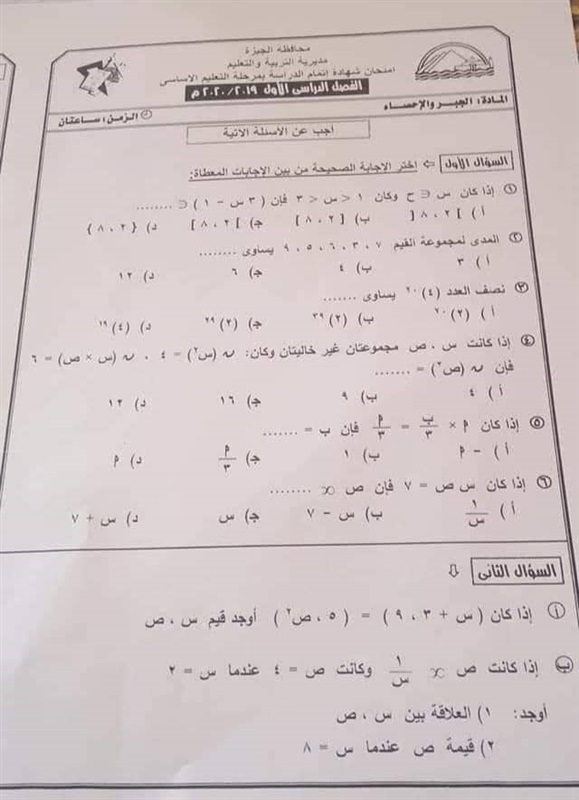 محافظة الجيزة
مديرية التربية والتعليم
امتحان شهادة إتمام الدراسة بمرحلة التعليم الأساسى
الفصل الدراسى الأول ٢٠٢٠/٢٠١٩ م
المادة: الجبر والإحصاء
الزمن: ساعتان
أجب عن الأسئلة الآتية
السؤال الأول ⇦ اختر الإجابة الصحيحة من بين الإجابات المعطاة:
١ إذا كان س ∈ ح وكان ١ < س < ٣ فإن ( ٣ س − ١ ) ∈ ........
أ ) ] ٢ ، ٨ [ ب) [ ٢ ، ٨ ] ج) ] ٢ ، ٨ ] د) { ٢ ، ٨ }
٢ المدى لمجموعة القيم ٧ ، ٣ ، ٦ ، ٥ ، ٩ يساوى ........
أ ) ٣ ب) ٤ ج) ٦ د) ١٢
٣ نصف العدد (٤)٢٠ يساوى .......
أ ) (٢)٢٠ ب) (٢)٣٩ ج) (٢)٢٩ د) (٤)١٩
٤ إذا كانت س ، ص مجموعتان غير خاليتان وكان: ن (س٢) = ٤ ، ن (س × ص) = ٦
فإن ن (ص٢) = .......
أ ) ٤ ب) ٩ ج) ١٦ د) ١٢
٥ إذا كان م × ب/٣ = م/٣ فإن ب = .......
أ ) − م ب) ١ ج) م/٣ د) م
٦ إذا كان س ص = ٧ فإن ص ∝ ........
أ ) ١/س ب) س − ٧ ج) س د) س + ٧
السؤال الثانى ⇩
أ إذا كان ( س + ٣ ، ٩ ) = ( ٥ ، ص٢ ) أوجد قيم س ، ص
ب إذا كانت ص ∝ ١/س وكانت ص = ٤ عندما س = ٢
أوجد: ١) العلاقة بين س ، ص
٢) قيمة ص عندما س = ٨